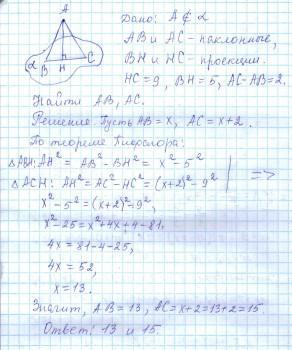 A
α
B
H
C
Дано: A ∉ α
AB и AC - наклонные,
BH и HC - проекции.
HC = 9, BH = 5, AC - AB = 2.
Найти AB, AC.
Решение. Пусть AB = x, AC = x + 2.
По теореме Пифагора:
△ABH: AH² = AB² - BH² = x² - 5²
△ACH: AH² = AC² - HC² = (x+2)² - 9² | =>
x² - 5² = (x+2)² - 9²,
x² - 25 = x² + 4x + 4 - 81,
4x = 81 - 4 - 25,
4x = 52,
x = 13.
Значит, AB = 13, AC = x + 2 = 13 + 2 = 15
Ответ: 13 и 15.